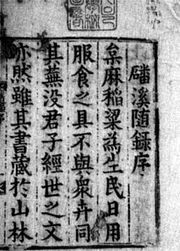 磻溪隨錄序
桑麻稻粱爲生民日用
服食之具不與衆卉同
其蕪没君子經世之文
亦然雖其書藏於山林